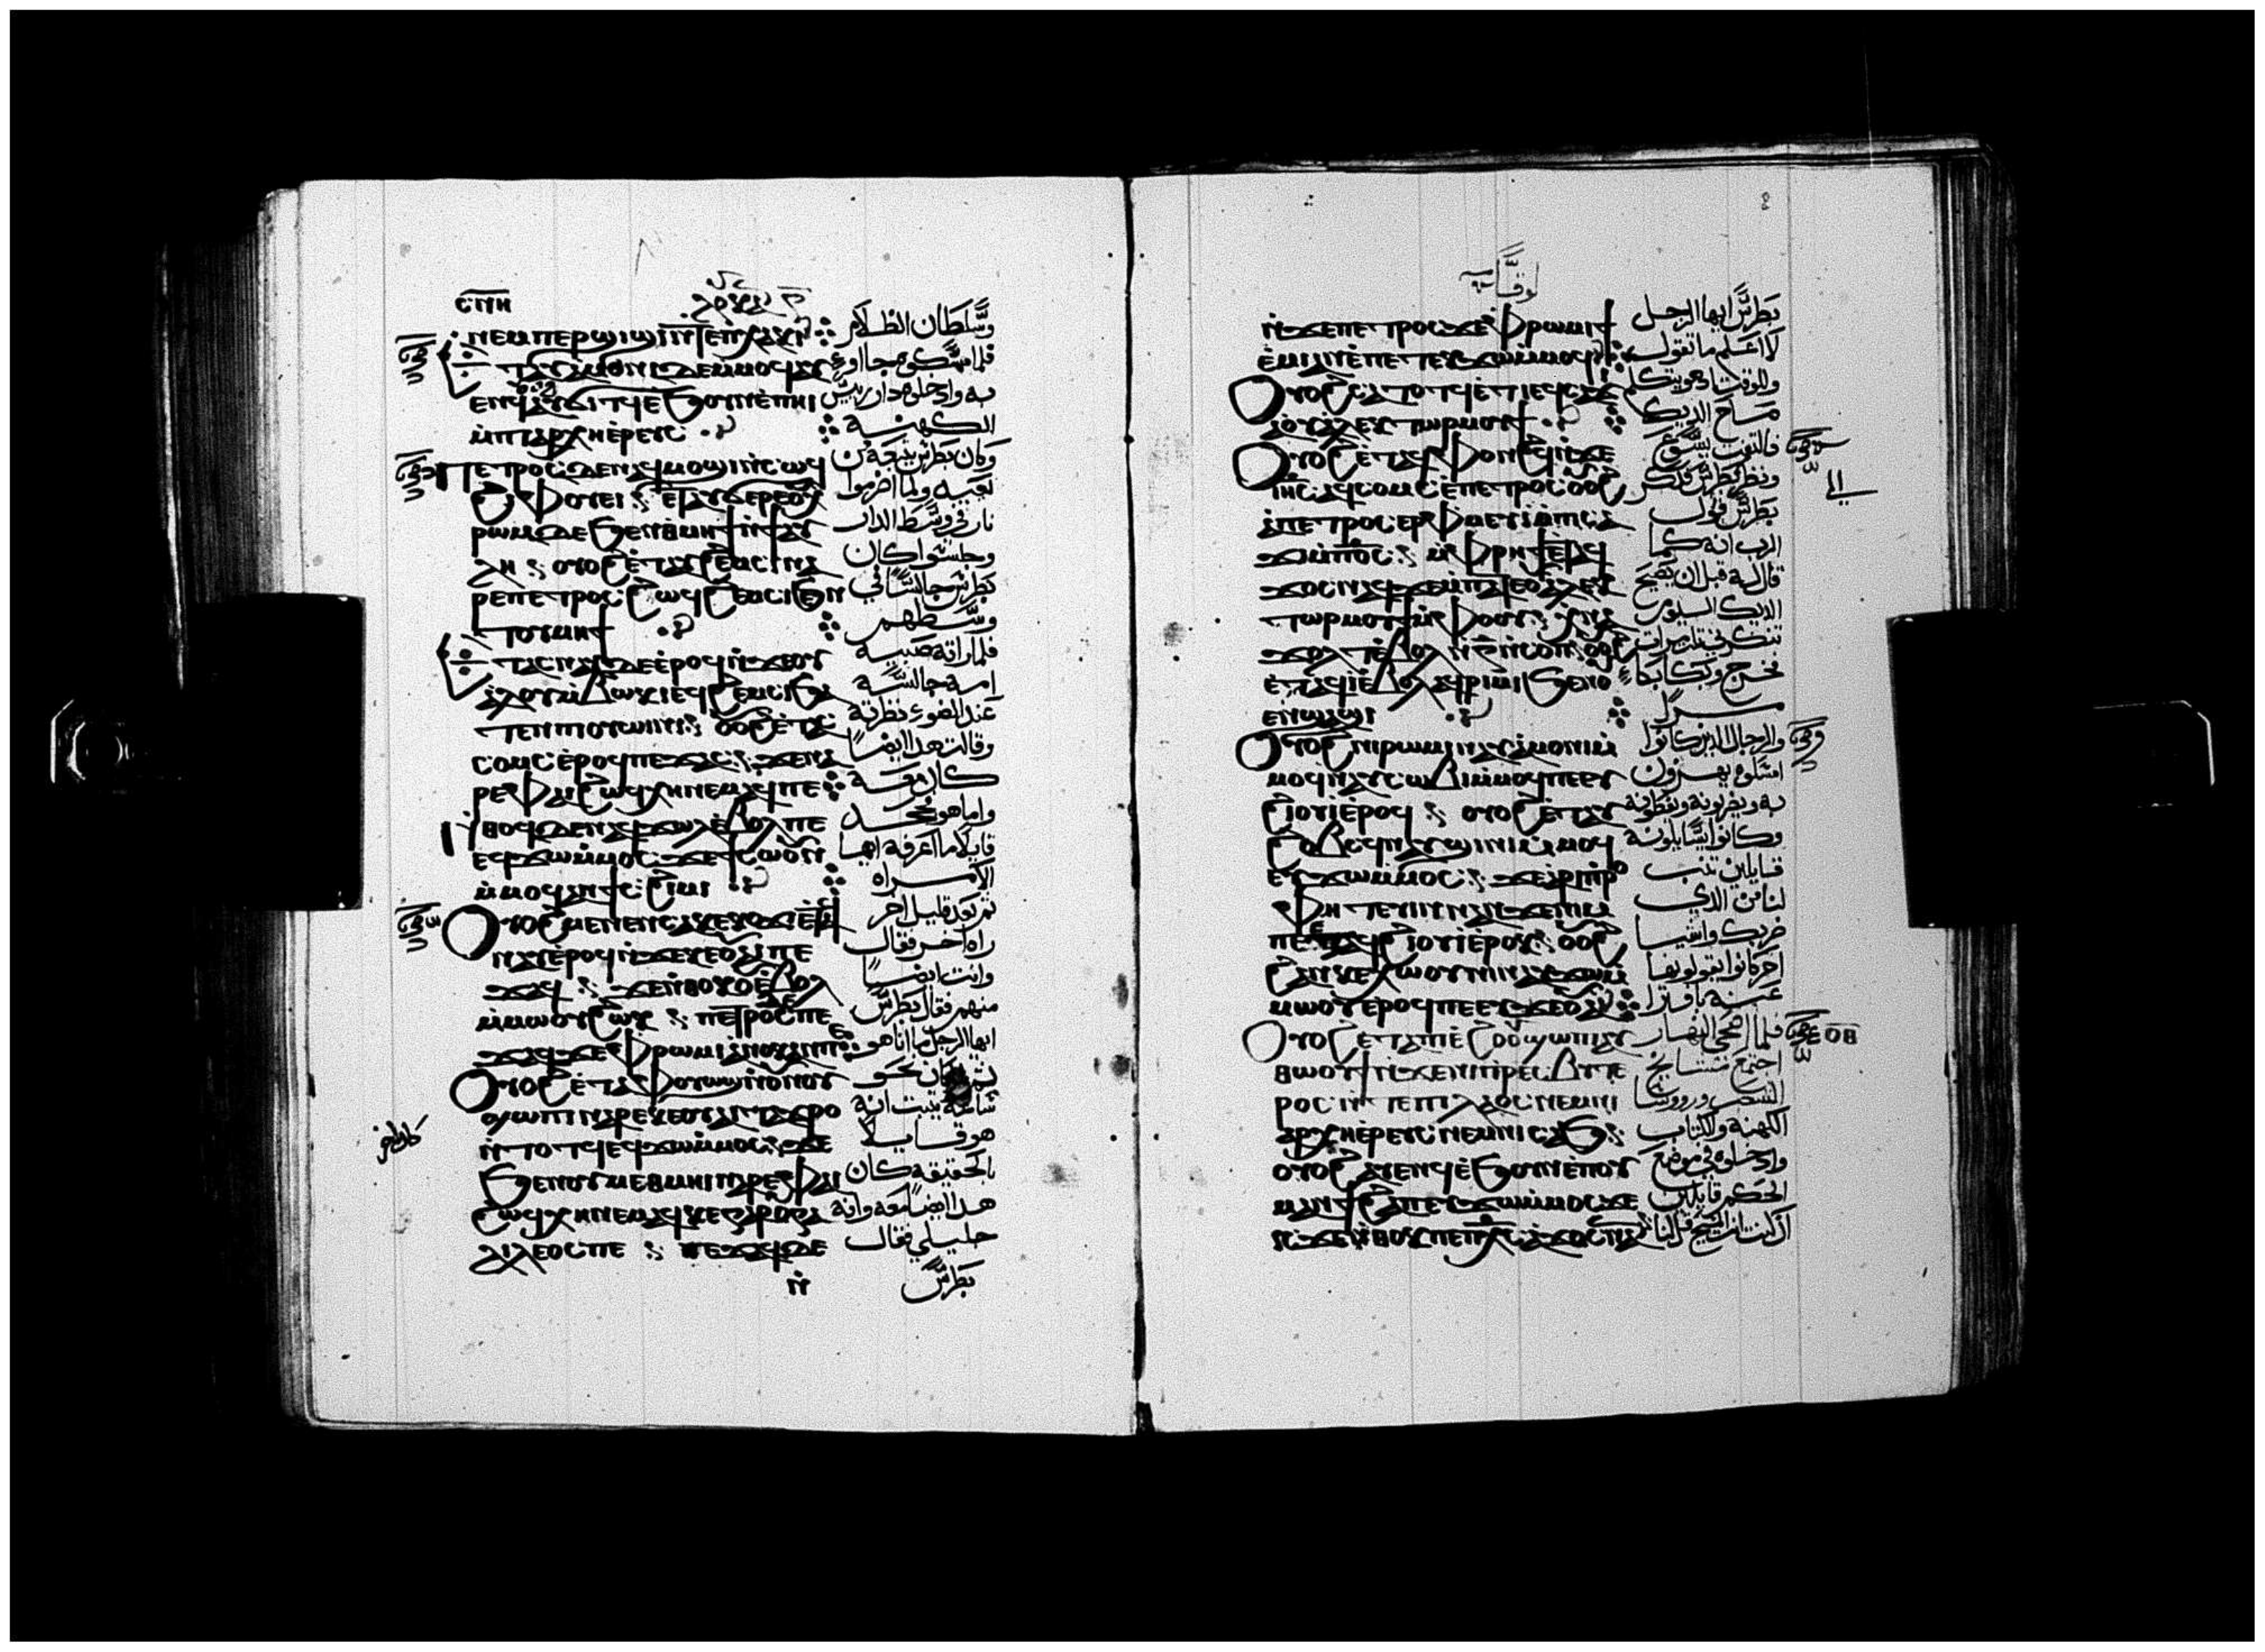 ⲥⲡⲏ
ⲛⲉⲙⲡⲉⲣϣⲓϣⲓ ⲛⲧⲉⲡⲭⲁⲕⲓ
ⲉⲛϥ ⲁⲩⲟⲗϥ ⲉϧⲟⲩⲛ ⲉⲡⲏⲓ
ⲙⲡⲓⲁⲣⲭⲏⲉⲣⲉⲩⲥ
ⲡⲉⲧⲣⲟⲥ ⲇⲉ ⲛⲁϥⲙⲟϣⲓ ⲛⲥⲱϥ
ϩⲓ ⲫⲟⲩⲉⲓ ⲉⲧⲁⲩϭⲉⲣⲉ ⲟⲩ
ⲭⲣⲱⲙ ⲇⲉ ϧⲉⲛ ⲑⲙⲏϯ ⲛϯⲁⲩ
ⲗⲏ ⲟⲩⲟϩ ⲉⲧⲁⲩϩⲉⲙⲥⲓ ⲛⲁ
ⲣⲉ ⲡⲉⲧⲣⲟⲥ ϩⲱϥ ϩⲉⲙⲥⲓ ϧⲉⲛ
ⲧⲟⲩⲙⲏϯ
ⲁⲥⲛⲁⲩ ⲇⲉ ⲉⲣⲟϥ ⲛϫⲉ ⲟⲩ
ⲁⲗⲟⲩ ⲙⲃⲱⲕⲓ ⲉϥϩⲉⲙⲥⲓ ϧⲁ
ⲧⲉⲛ ⲡⲓⲟⲩⲱⲓⲛⲓ ⲟⲩⲟϩ ⲉⲧⲁⲥ
ⲥⲟⲙⲥ ⲉⲣⲟϥ ⲡⲉϫⲁⲥ ϫⲉ ⲛⲁ
ⲣⲉ ⲫⲁⲓ ϩⲱϥ ⲭⲏ ⲛⲉⲙⲁϥ ⲡⲉ
ⲛⲑⲟϥ ⲇⲉ ⲛⲁϥϫⲱⲗ ⲉⲃⲟⲗ ⲡⲉ
ⲉϥϫⲱ ⲙⲙⲟⲥ ϫⲉ ϯⲥⲱⲟⲩⲛ
ⲙⲙⲟϥ ⲁⲛ ϯⲥϩⲓⲙⲓ
ⲟⲩⲟϩ ⲙⲉⲛⲉⲛⲥⲁ ⲕⲉⲕⲟⲩϫⲓ ⲉⲧⲁϥ
ⲛⲁⲩ ⲉⲣⲟϥ ⲛϫⲉ ⲕⲉⲟⲩⲁⲓ ⲡⲉ
ϫⲁϥ ϫⲉ ⲛⲑⲟⲕ ⲟⲩⲉⲃⲟⲗ
ⲙⲙⲱⲟⲩ ϩⲱⲕ ⲡⲉⲧⲣⲟⲥ ⲇⲉ ⲡⲉ
ϫⲁϥ ϫⲉ ⲫⲣⲱⲙⲓ ⲁⲛⲟⲕ ⲁⲛ ⲡⲉ
ⲟⲩⲟϩ ⲉⲧⲁ ⲫⲟⲩⲱϣ ⲛⲟⲩⲛⲟⲩ
ϣⲱⲡⲓ ⲛⲁⲣⲉ ⲕⲉⲟⲩⲁⲓ ⲛⲧⲁϫⲣⲟ
ⲛⲧⲟⲧϥ ⲉϥϫⲱ ⲙⲙⲟⲥ ϫⲉ
ϧⲉⲛ ⲟⲩⲙⲉⲑⲙⲏⲓ ⲛⲁⲣⲉ ⲫⲁⲓ
ϩⲱϥ ⲭⲏ ⲛⲉⲙⲁϥ ⲕⲉ ⲅⲁⲣ ⲟⲩⲅⲁ
ⲗⲓⲗⲉⲟⲥ ⲡⲉ ⲡⲉϫⲁϥ ⲇⲉ
ⲛ
وسلطان الظلام
به وادخلوه دار رييس
الكهنه
وكان بطرس يتبعه من
نار في وسط الدار
وجلسوا كان
بطرس جالسا في
وسطهم
فلما راته صبيه
امه جالسه
عند الضوء نظرته
وقالت هدا ايضا
كان معه
واما هو فجحد
قايلا ما اعرفه ايها
الامراه
ثم بعد قليل اخر
راه اخر فقال
وانت ايضا
منهم فقال بطرس
ايها الرجل ما انا هو
ساعه يثبت انه
هو قايلا
بالحقيقه كان
هدا ايضا معه وانه
جليلي فقال
بطرس
لوقا
ⲛϫⲉ ⲡⲉⲧⲣⲟⲥ ϫⲉ ⲫⲣⲱⲙⲓ ϯ
ⲉⲙⲓ ⲁⲛ ⲉⲡⲉⲧⲉⲕϫⲱ ⲙⲙⲟϥ
ⲟⲩⲟϩ ⲥⲁⲧⲟⲧϥ ⲉⲧⲓ ⲉϥⲥⲁϫⲓ
ⲁⲟⲩⲁⲗⲉⲕⲧⲱⲣ ⲙⲟⲩϯ
ⲟⲩⲟϩ ⲉⲧⲁϥⲫⲟⲛϩϥ ⲛϫⲉ
ⲓⲏⲥ ⲁϥⲥⲟⲙⲥ ⲉⲡⲉⲧⲣⲟⲥ ⲟⲩⲟϩ
ⲁ ⲡⲉⲧⲣⲟⲥ ⲉⲣⲫⲙⲉⲩⲓ ⲙⲡⲥⲁ
ϫⲓ ⲙⲡϭⲟⲓⲥ ⲙⲫⲣⲏϯ ⲉⲧⲁϥ
ϫⲟⲥ ⲛⲁϥ ϫⲉ ⲙⲡⲁⲧⲉ ⲟⲩⲁⲗⲉⲕ
ⲧⲱⲣ ⲙⲟⲩϯ ⲙⲫⲟⲟⲩ ⲭⲛⲁ
ϫⲟⲗⲧ ⲉⲃⲟⲗ ⲛⲅ ⲛⲥⲟⲡ ⲟⲩⲟϩ
ⲉⲧⲁϥⲓ ⲉⲃⲟⲗ ⲁϥⲣⲓⲙⲓ ϧⲉⲛ ⲟⲩ
ⲉⲛϣⲁϣⲓ
ⲟⲩⲟϩ ⲛⲓⲣⲱⲙⲓ ⲛⲁⲩⲁⲙⲟⲛⲓ ⲙ
ⲙⲟϥ ⲛⲁⲩⲥⲱⲃⲓ ⲙⲙⲟϥ ⲡⲉ ⲉⲩ
ϩⲓⲟⲩⲓ ⲉⲣⲟϥ ⲟⲩⲟϩ ⲉⲧⲁⲩ
ϩⲟⲃⲥϥ ⲛⲁⲩϣⲓⲛⲓ ⲙⲙⲟϥ
ⲉⲩϫⲱ ⲙⲙⲟⲥ ϫⲉ ⲁⲣⲓⲡⲣⲟ
ⲫⲏⲧⲉⲩⲓⲛ ⲛⲁⲛ ϫⲉ ⲛⲓⲙ
ⲡⲉⲧⲁϥϩⲓⲟⲩⲓ ⲉⲣⲟⲕ ⲟⲩⲟϩ
ϩⲁⲛⲕⲉⲭⲱⲟⲩⲛⲓ ⲛⲁⲩϫⲱ ⲙ
ⲙⲱⲟⲩ ⲉⲣⲟϥ ⲡⲉ ⲉⲩϫⲉⲟⲩⲁ
ⲟⲩⲟϩ ⲉⲧⲁ ⲡⲓⲉϩⲟⲟⲩ ϣⲱⲡⲓ ⲁⲩ
ⲑⲱⲟⲩϯ ⲛϫⲉ ⲛⲓⲡⲣⲉⲥⲃⲩⲧⲉ
ⲣⲟⲥ ⲛⲧⲉ ⲡⲓⲗⲁⲟⲥ ⲛⲉⲙ ⲛⲓ
ⲁⲣⲭⲏⲉⲣⲉⲩⲥ ⲛⲉⲙ ⲛⲓⲥⲁϧ
ⲟⲩⲟϩ ⲁⲩⲉⲛϥ ⲉϧⲟⲩⲛ ⲉⲡⲟⲩ
ⲙⲁⲛϯϩⲁⲡ ⲉⲩϫⲱ ⲙⲙⲟⲥ ϫⲉ
ⲓⲥϫⲉ ⲛⲑⲟⲕ ⲡⲉ ⲡⲭⲥ ⲁϫⲟⲥ ⲛⲁⲛ
بطرس ايها الرجل
لا اعلم ما تقول
وللوقت اد هو يتكلم
صاح الديك
فالتفت يسوع
ونظر بطرس فدكر
بطرس قول
الرب انه كما
قال له قبل ان يصيح
الديك اليوم
تنكرني تلت مرات
فخرج وبكا بكا
مرا
والرجال الدين كانوا
امسكوه يهزون
به ويضربونه ويغطونه
وكانوا يسايلونه
قايلين تنب
لنا من الدي
ضربك واشيا
اخر كانوا يقولونها
عنه بافترا
اجتمع مشايخ
الشعب ورووسا
الكهنه والكتاب
وادخلوه في موضع
الحكم قايلين
ان كنت انت المسيح قل لنا
ⲟⲃ